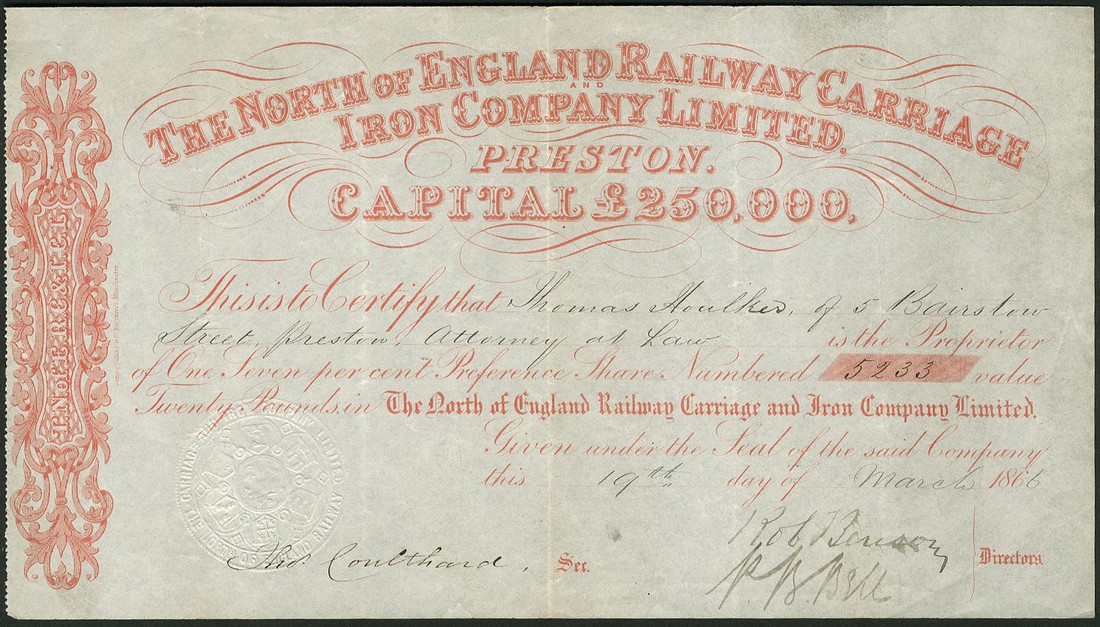 THE NORTH OF ENGLAND RAILWAY CARRIAGE
AND
IRON COMPANY LIMITED.
PRESTON.
CAPITAL £250,000,
This is to Certify that Thomas Houlker, of 5 Bairstow
Street, Preston, Attorney at Law is the Proprietor
of One Seven per cent Preference Share Numbered 5233 value
Twenty Pounds, in The North of England Railway Carriage and Iron Company Limited.
Given under the Seal of the said Company
this 19th day of March 1866
Thos. Coulthard, Sec.
Rob Benson
P. B. Bell
Directors.